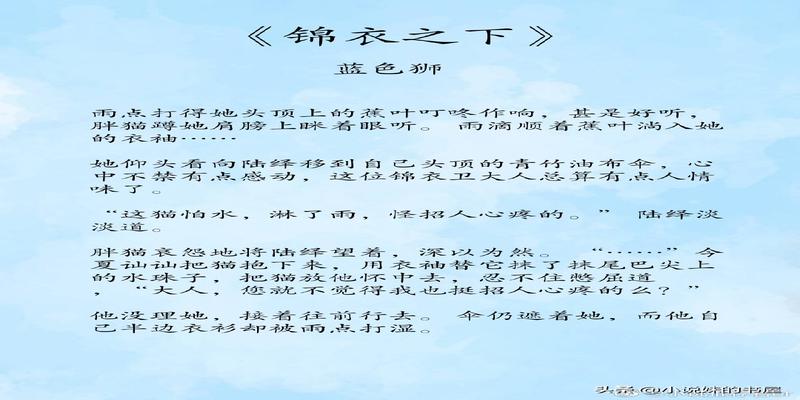 《锦衣之下》
蓝色狮
雨点打得她头顶上的蕉叶叮咚作响，甚是好听，
胖猫蹲她肩膀上眯着眼听。 雨滴顺着蕉叶淌入她
的衣袖……
她仰头看向陆绎移到自己头顶的青竹油布伞，心
中不禁有点感动，这位锦衣卫大人总算有点人情
味了。
“这猫怕水，淋了雨，怪招人心疼的。” 陆绎淡
淡道。
胖猫哀怨地将陆绎望着，深以为然。 “……”今
夏讪讪把猫抱下来，用衣袖替它抹了抹尾巴尖上
的水珠子，把猫放他怀中去，忍不住憋屈道
，“大人，您就不觉得我也挺招人心疼的么？”
他没理她，接着往前行去。 伞仍遮着她，而他自
己半边衣衫却被雨点打湿。
头条 @小说妹的书屋